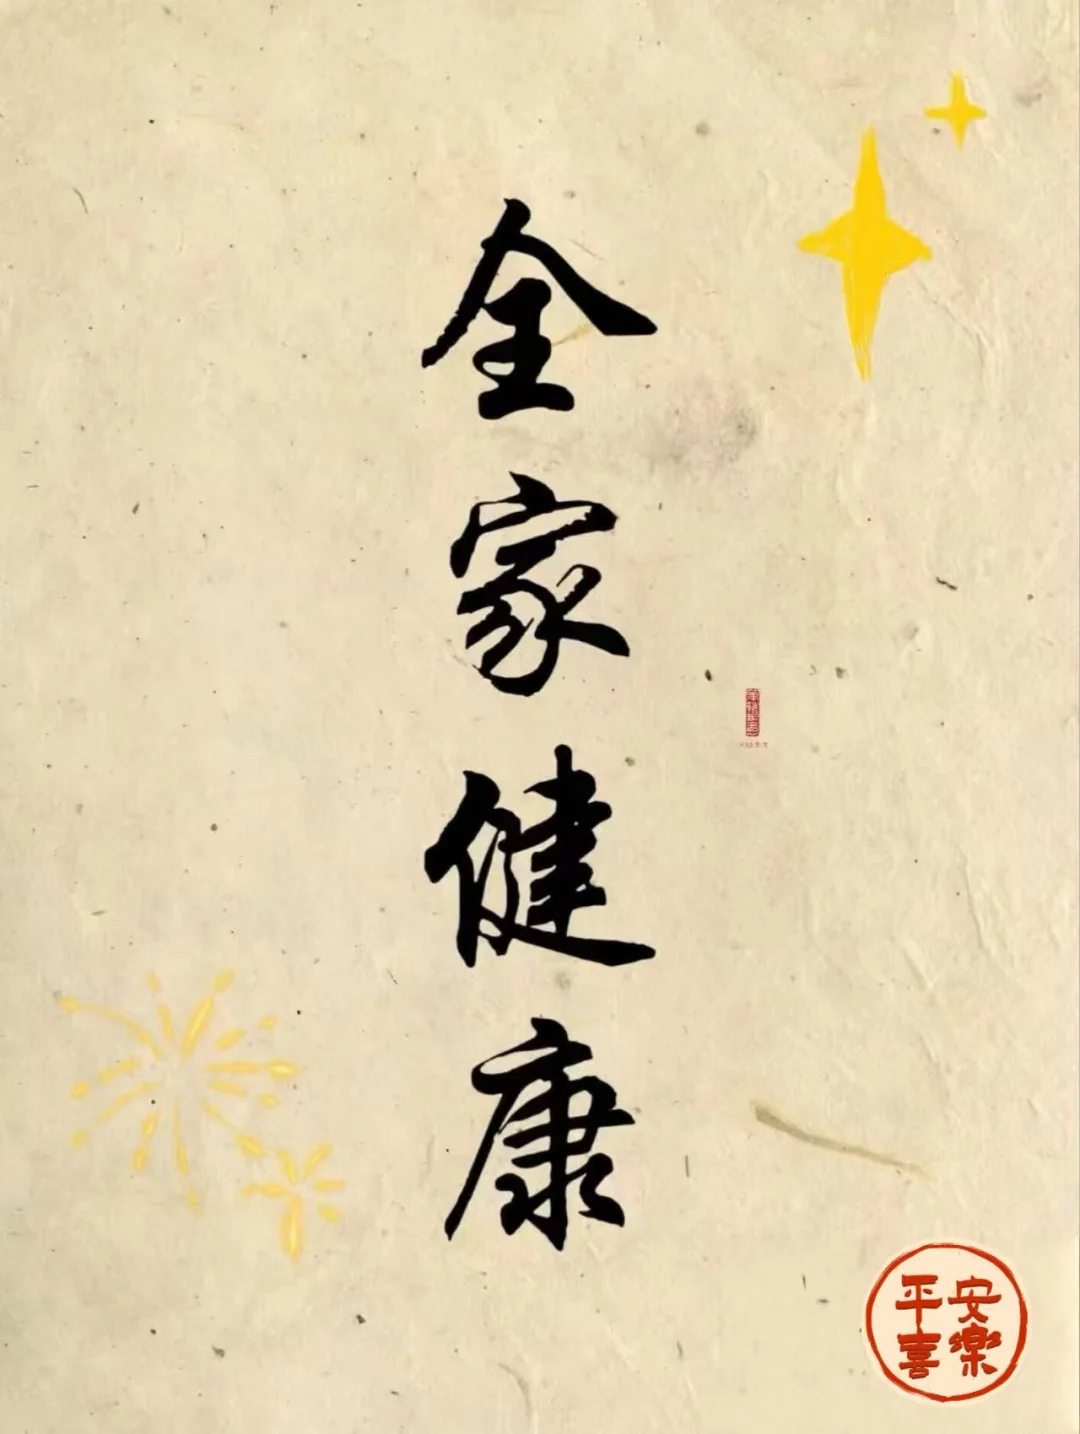 全家健康
平安
喜樂